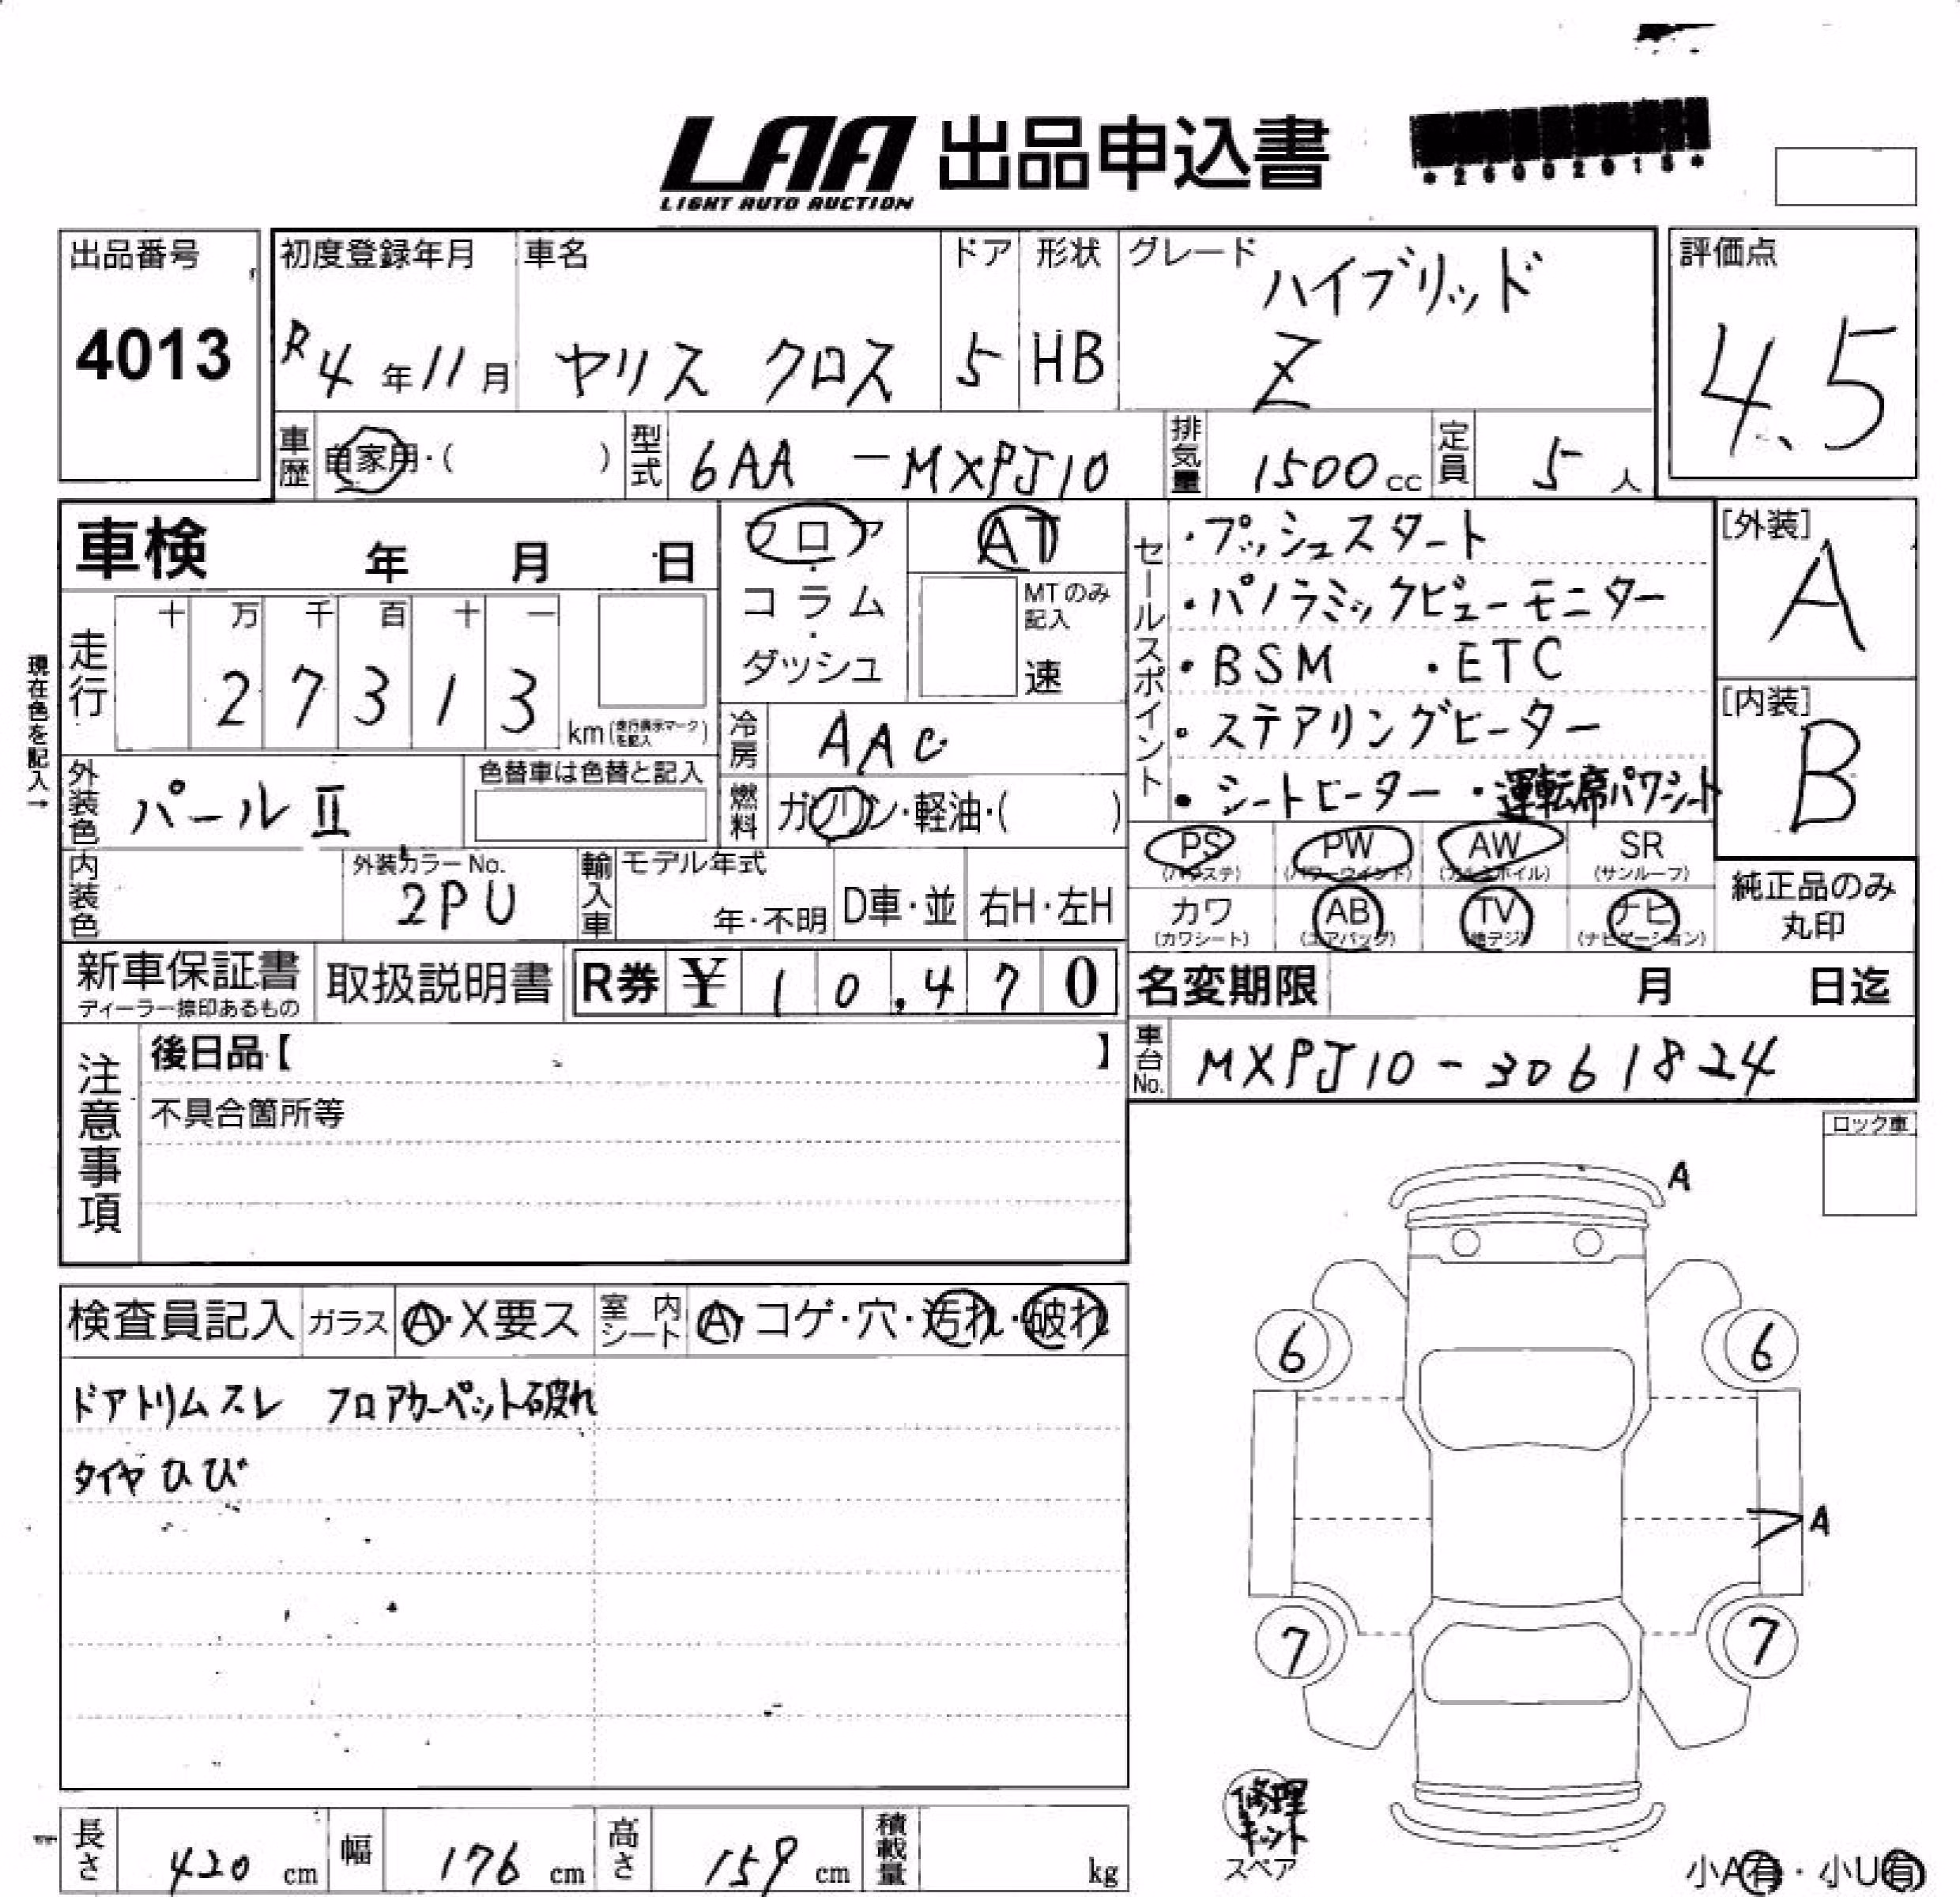 LAA 出品申込書
LIGHT AUTO AUCTION
*26002015*
出品番号
4013
初度登録年月
R4年11月
車名
ヤリス クロス
ドア
5
形状
HB
グレード
ハイブリッド
Z
評価点
4.5
車歴
自家用・( )
型式
6AA - MXPJ10
排気量
1500cc
定員
5人
車検 年 月 日
フロア・コラム・ダッシュ
AT
MTのみ記入
速
現在色を記入→
走行
十 万 千 百 十 一
2 7 3 1 3
km(走行表示マークを記入)
冷房
AAC
外装色
パールⅡ
色替車は色替と記入
燃料
ガソリン・軽油・( )
内装色
外装カラーNo.
2PU
輸入車
モデル年式
年・不明
D車・並
右H・左H
セールスポイント
・プッシュスタート
・パノラミックビューモニター
・BSM ・ETC
・ステアリングヒーター
・シートヒーター ・運転席パワーシート
[外装]
A
[内装]
B
PS
(パワステ)
PW
(パワーウインド)
AW
(アルミホイル)
SR
(サンルーフ)
カワ
(カワシート)
AB
(エアバッグ)
TV
(地デジ)
ナビ
(ナビゲーション)
純正品のみ
丸印
新車保証書
ディーラー捺印あるもの
取扱説明書
R券 ¥ 10,470
名変期限 月 日迄
車台No.
MXPJ10-3061824
注意事項
後日品【 】
不具合箇所等
ロック車
検査員記入
ガラス
A・X要ス
室内シート
A・コゲ・穴・汚れ・破れ
ドアトリムスレ フロアカーペット破れ
タイヤひび
A
6
6
A
7
7
修理
キット
スペア
小A有・小U有
長さ
420cm
幅
176cm
高さ
159cm
積載量
kg